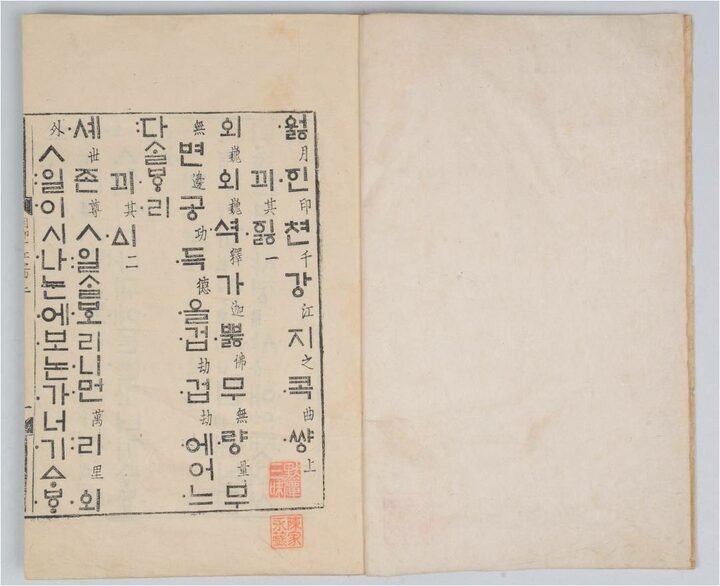 ·ᅌᅯᇙ月·인印쳔千강江지之·콕曲·썅上
끠其·ᅙᅵᇙ一
외巍외巍·셕釋가迦·뿛佛무無량量무
無변邊공功·득德·을·겁劫·겁劫·에어·느
:다ᄉᆞᆯᄫᆞ·리
끠其·ᅀᅵ二
·셰世존尊ㅅ:일ᄉᆞᆯᄫᅩ·리·니·먼萬:리里·외
外ㅅ:일이시·나·눈·에보논·가너·기ᅀᆞᄫᆞ